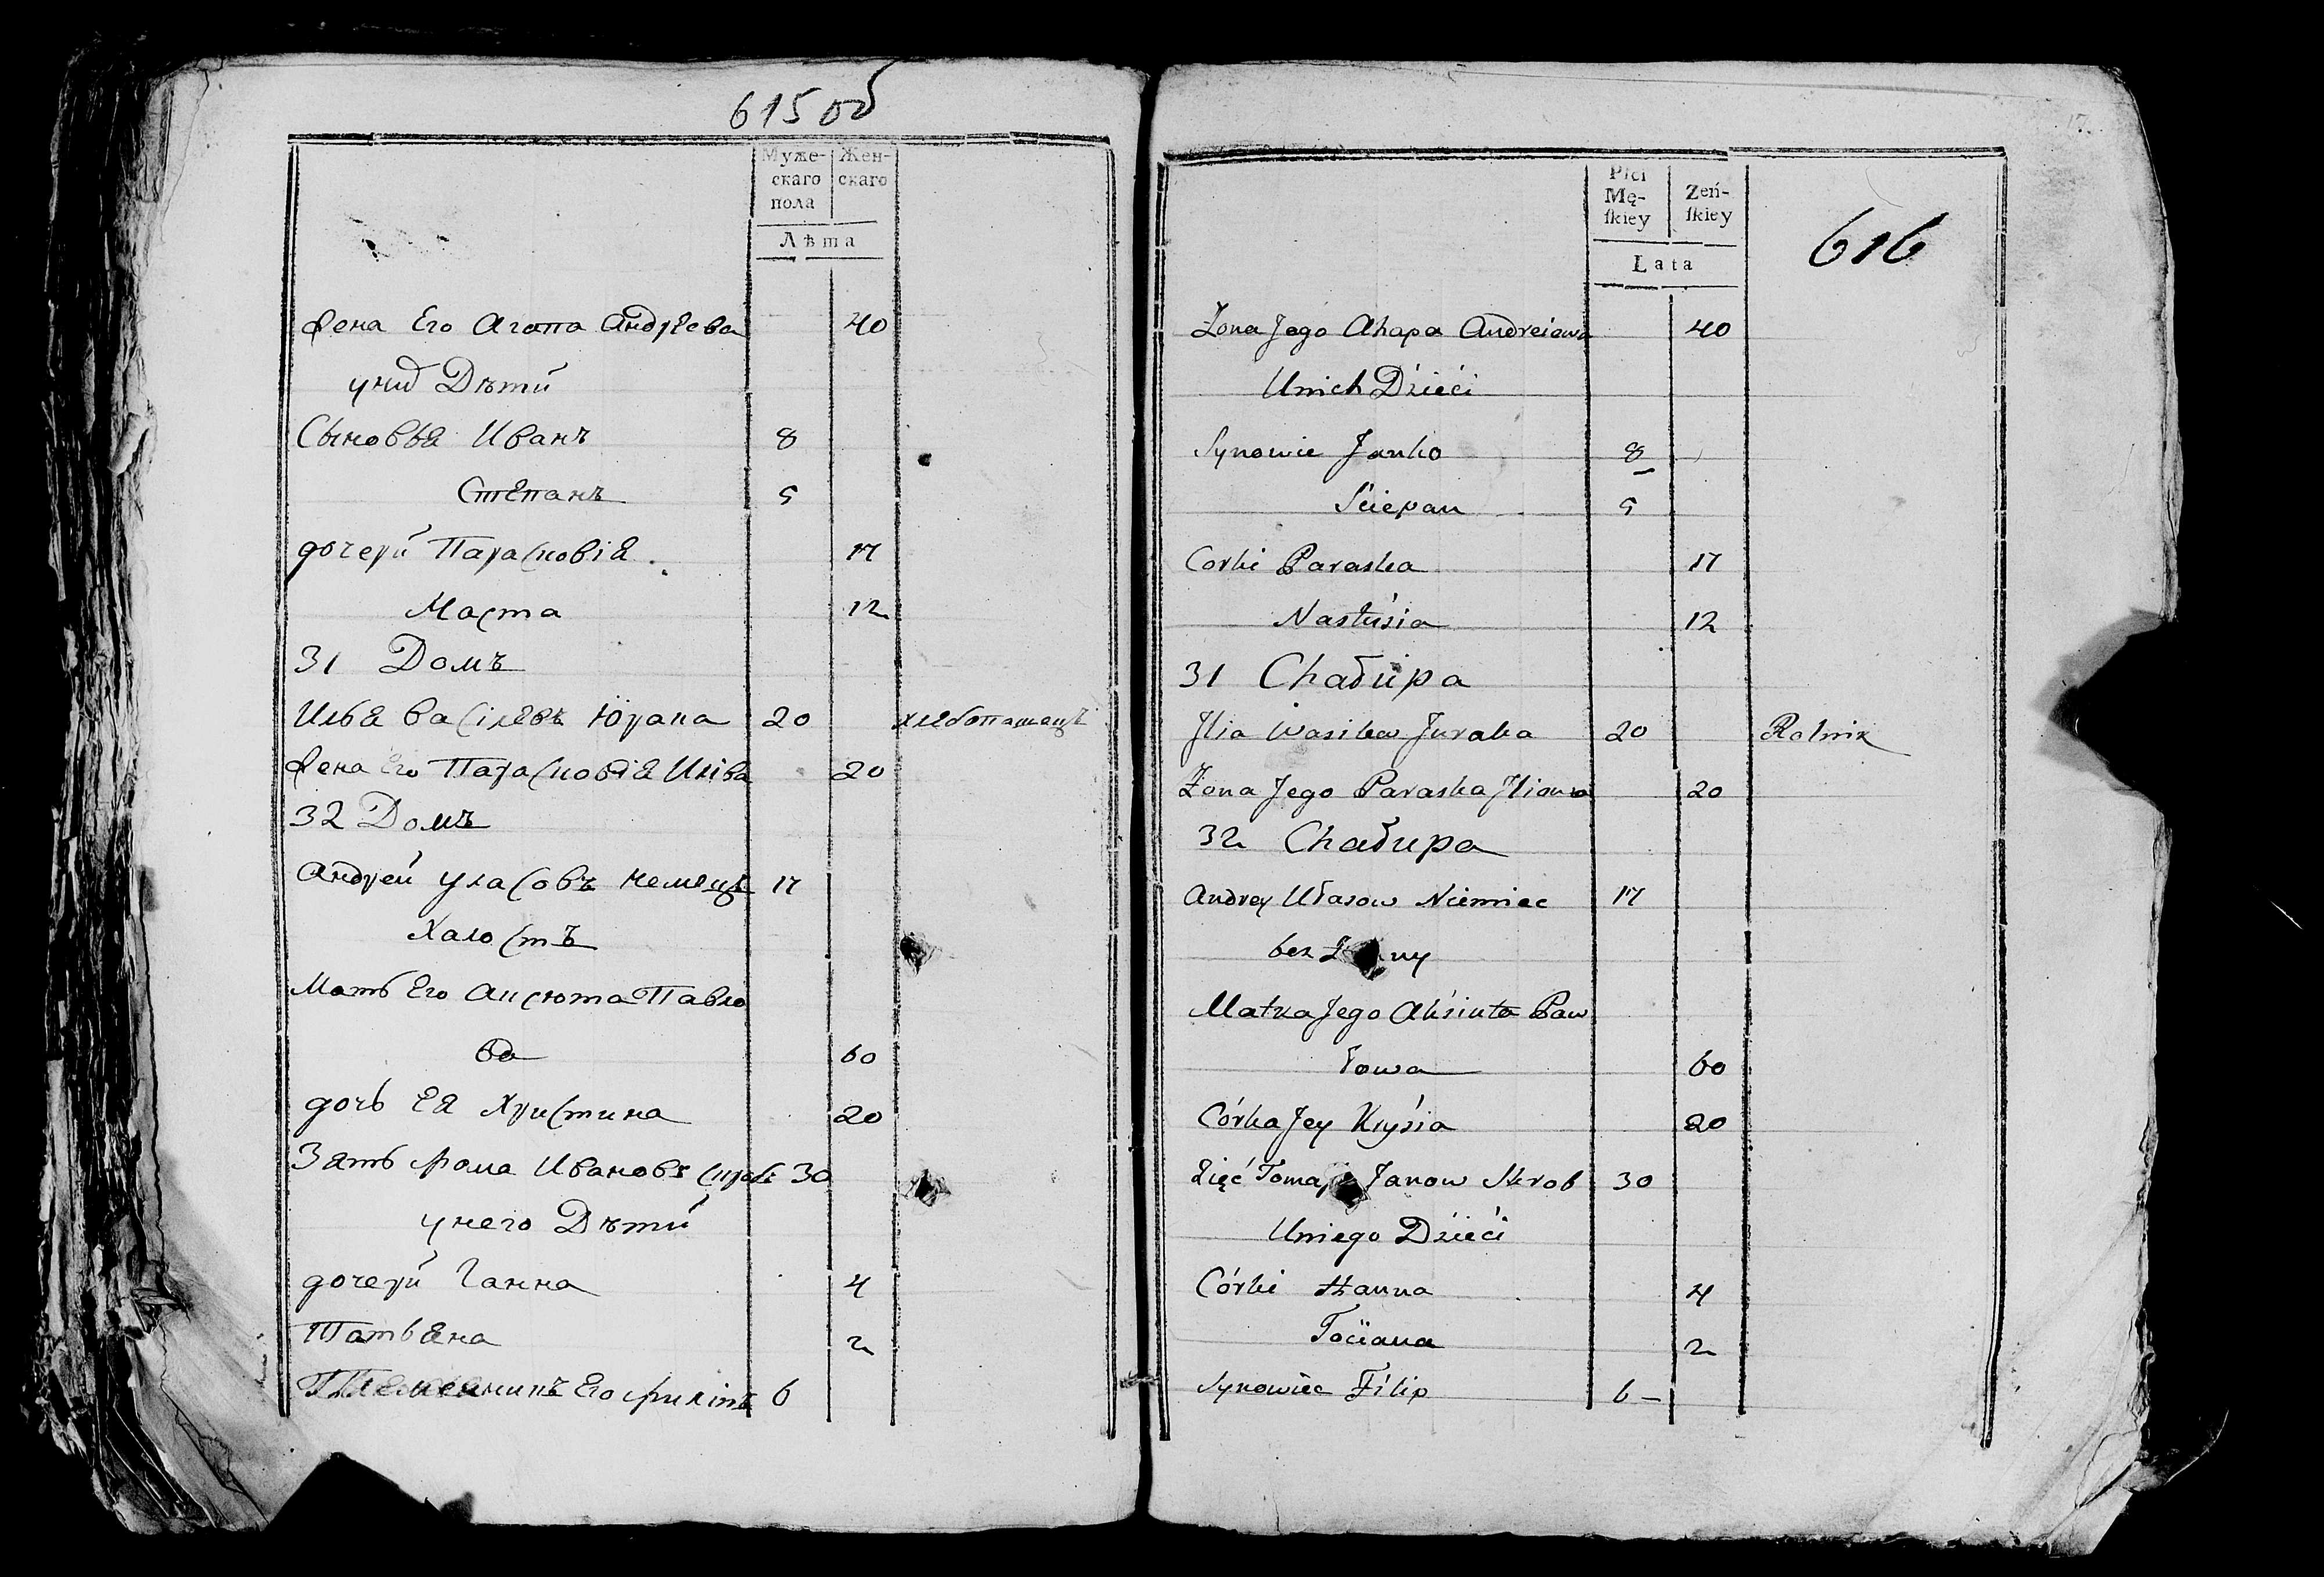 615 об
Муже- Жен-
скаго скаго
пола
Лѣта
жена Его Агапа Андрѣева 40
у них Дѣти
Сыновья Иванъ 8
Степанъ 5
дочери Парасковія 17
Наста 12
31 Домъ
Илья Васілевъ Юрака 20 хлебопашецъ
жена Его Парасковія Иліва 20
32 Домъ
Андрей Уласовъ Немецъ 17
Халостъ
Мать Его Аксюта Павло
ва 60
дочь Ея Христина 20
Зять Фома Ивановъ Скробъ 30
у него Дѣти
дочери Ганна 4
Татьяна 2
Племянникъ Его Филіпъ 6
Płci
Mę- Zeń-
ſkiey ſkiey
Lata
616
Żona Jego Ahapa Andreiewa 40
Unich Dzieći
Synowie Janko 8
Sciepan 5
Corki Paraska 17
Nastuśia 12
31 Chałupa
Jlia Wasilew Juraka 20 Rolnik
Żona Jego Paraska Jliowa 20
32 Chałupa
Andrey Ułasow Niemiec 17
bez Żony
Matka Jego Akśiuta Paw
łowa 60
Córka Jey Krysia 20
Zięć Tomasz Janow Skrob 30
Uniego Dzieći
Córki Hanna 4
Tociana 2
Synowiec Filip 6 –